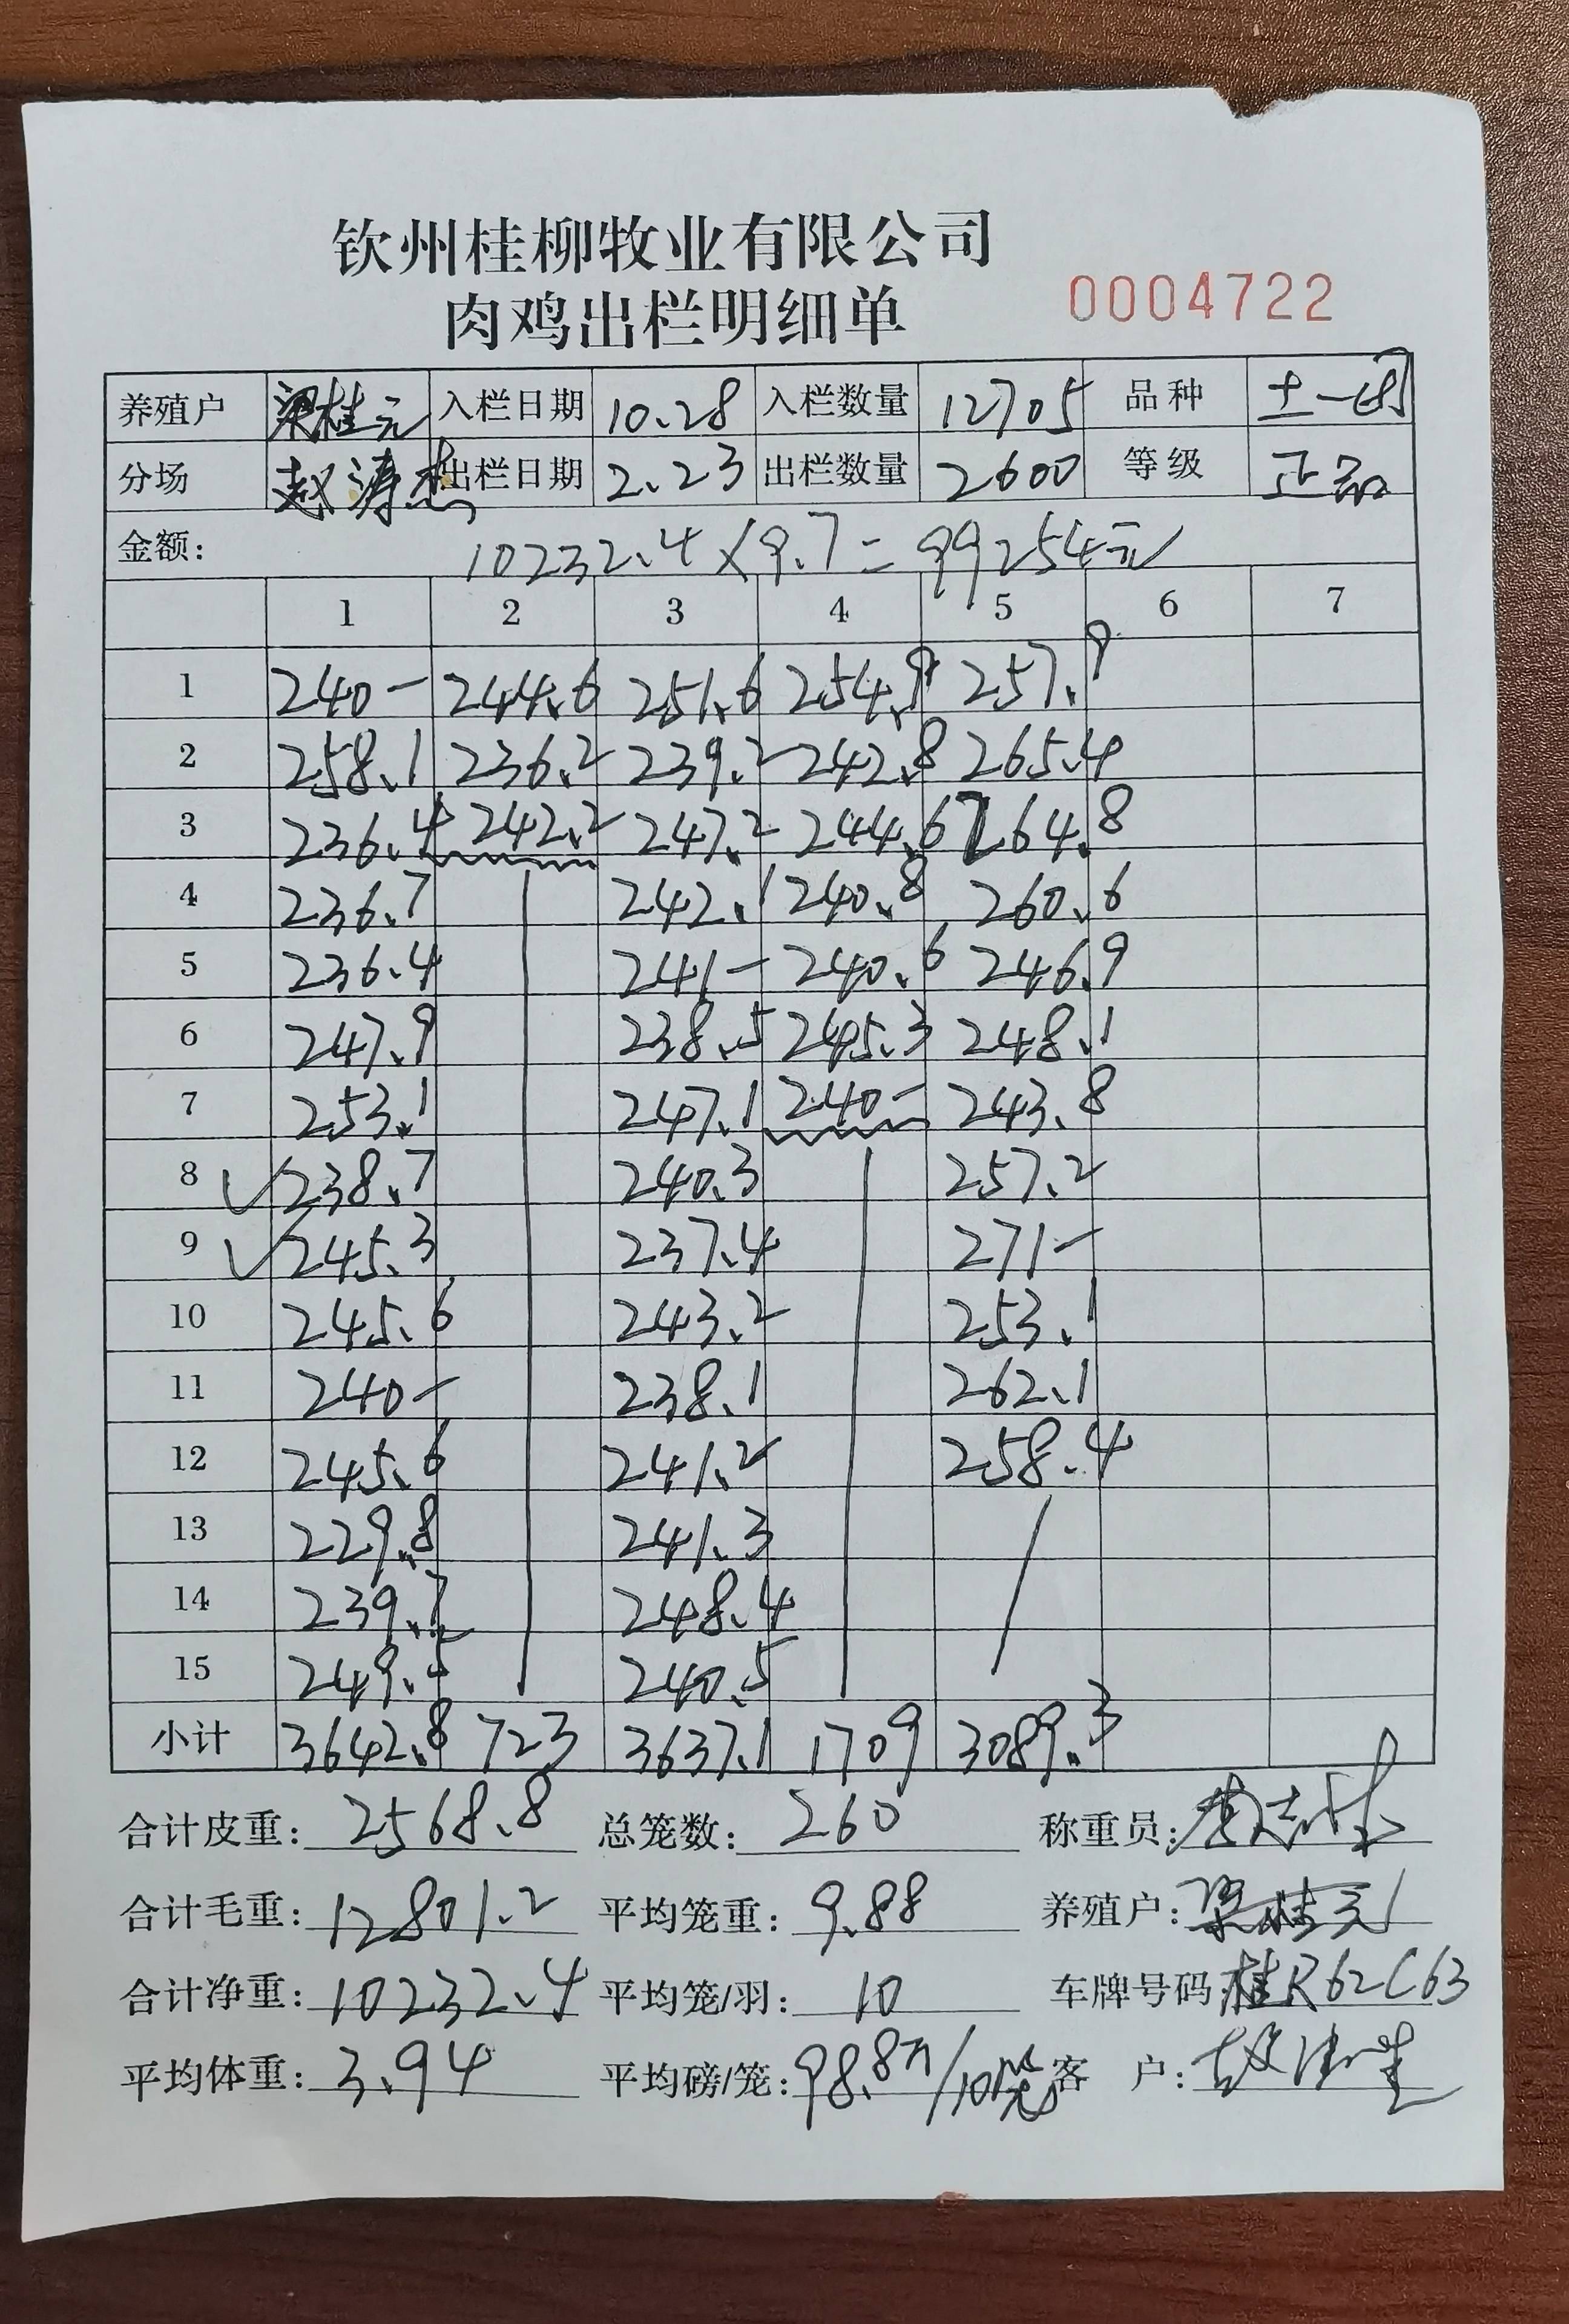 钦州桂柳牧业有限公司
肉鸡出栏明细单 0004722
养殖户 梁桂元 入栏日期 10.28 入栏数量 12705 品种 土一
分场 赵涛 出栏日期 2.23 出栏数量 2600 等级 正品
金额: 10232.4×9.7=99254元
1 2 3 4 5 6 7
1 240- 244.6 251.6 254.9 257.9
2 258.1 236.2 239.2 242.8 265.4
3 236.4 242.2 247.2 244.6 264.8
4 236.7 242.1 240.8 260.6
5 236.4 241- 240.6 246.9
6 247.9 238.5 245.3 248.1
7 253.1 247.1 240- 243.8
8 ✓238.7 240.3 257.2
9 ✓245.3 237.4 271-
10 245.6 243.2 253.1
11 240- 238.1 262.1
12 245.6 241.2 258.4
13 229.8 241.3
14 239.7 248.4
15 249.5 240.5
小计 3642.8 723 3637.1 1709 3089.3
合计皮重: 2568.8 总笼数: 260 称重员:
合计毛重: 12801.2 平均笼重: 9.88 养殖户: 梁桂元
合计净重: 10232.4 平均笼/羽: 10 车牌号码: 桂R62C63
平均体重: 3.94 平均磅/笼: 98.8斤/10笼 客 户: